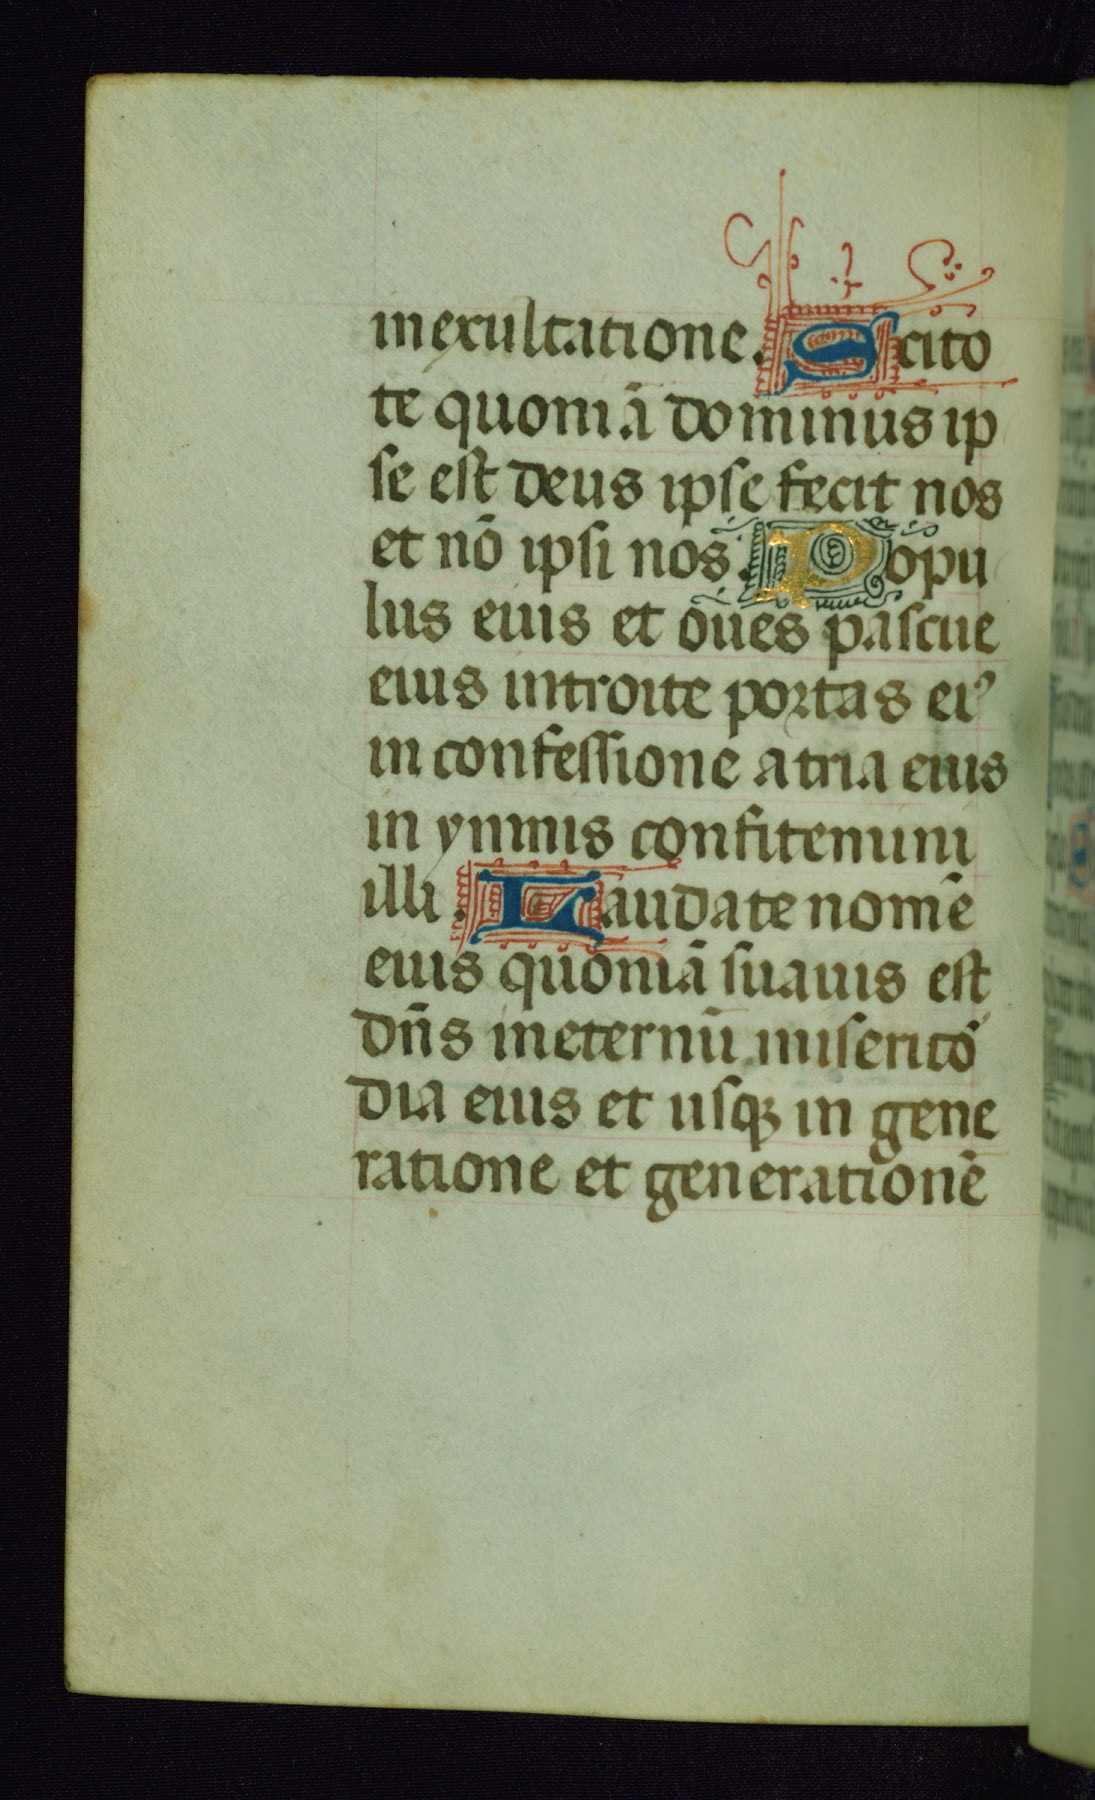 in exultatione. Scito
te quoniā dominus ip
se est deus ipse fecit nos
et nō ipsi nos. Popu
lus eius et oues pascue
eius introite portas ei᾿
in confessione atria eius
in ymnis confitemini
illi. Laudate nomē
eius quoniā suauis est
dn̄s in eternū misericō
dia eius et usqꝫ in gene
ratione et generationē